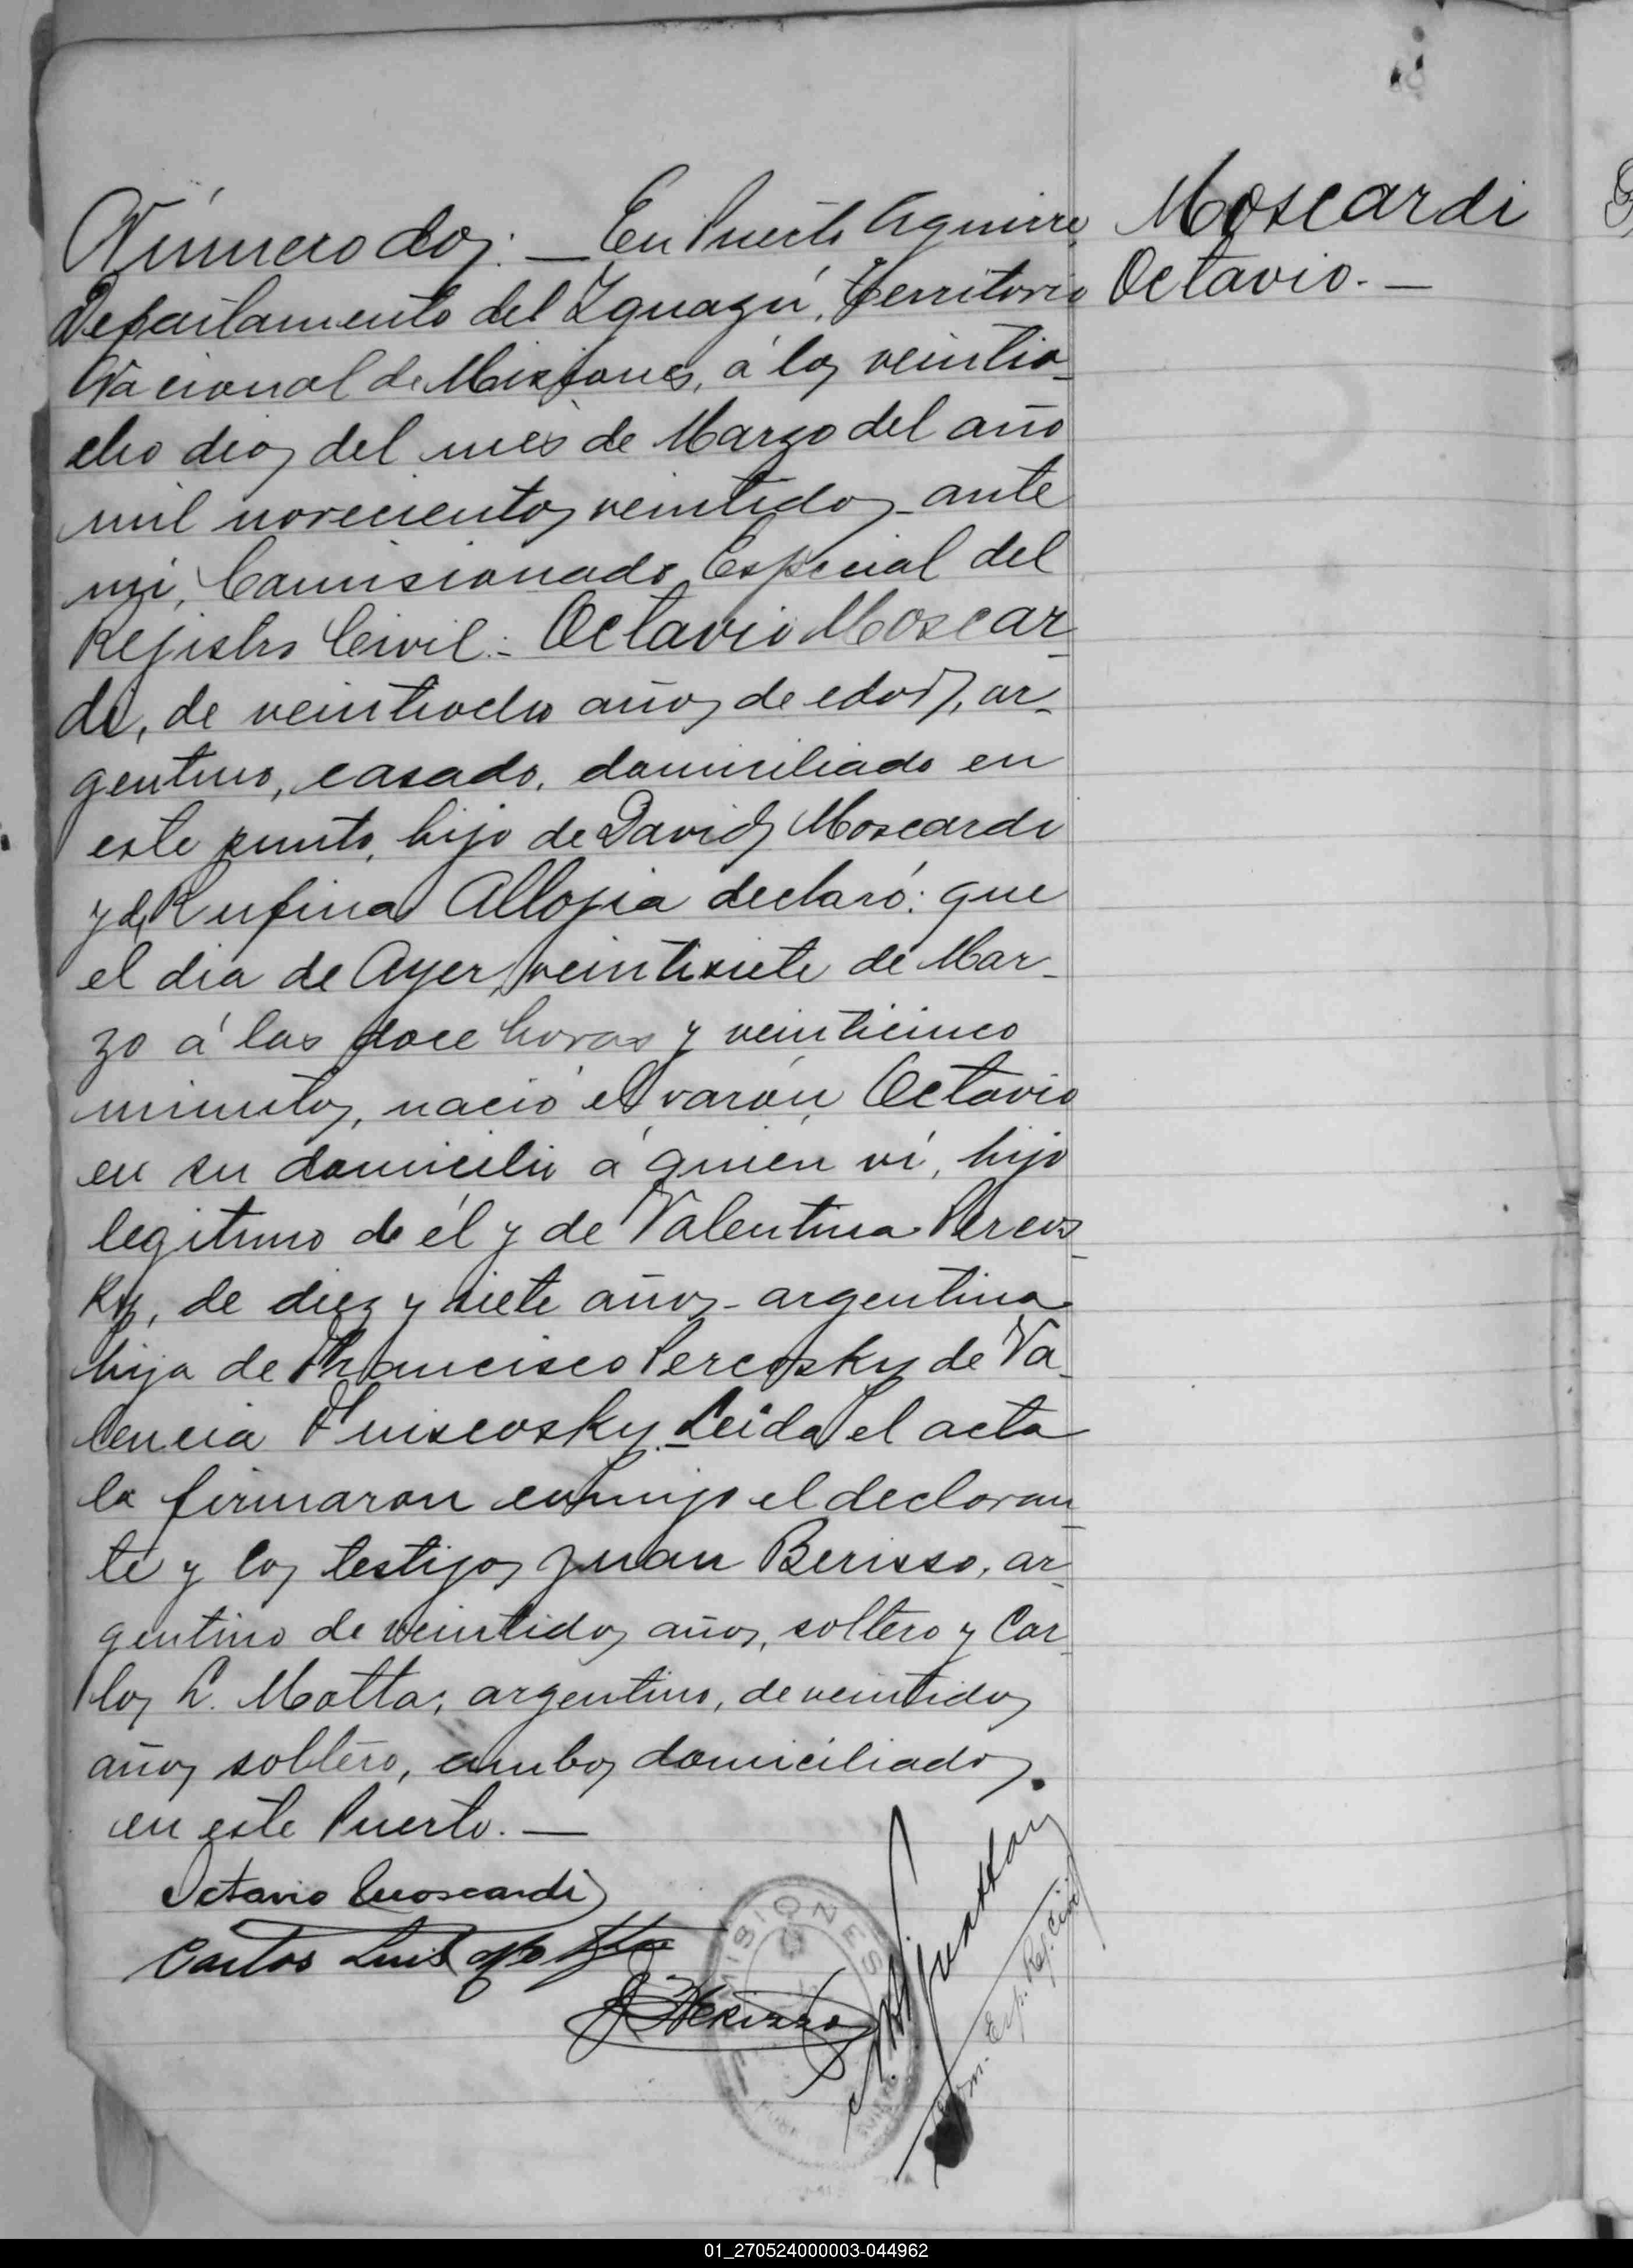 Número dos. — En Puerto Aguirre,
Departamento del Iguazú, Territorio
Nacional de Misiones, á los veintio-
cho dias del mes de Marzo del año
mil novecientos veintidos - ante
mi, Comisionado Especial del
Registro Civil - Octavio Moscar-
di, de veintiocho años de edad, ar-
gentino, casado, domiciliado en
este punto, hijo de David Moscardi
y de Rufina declaró: que
el dia de Ayer, veintisiete de Mar-
zo á las doce horas y veinticinco
minutos, nació el varón Octavio
en su domicilio á quien ví, hijo
legitimo de él y de Valentina Percos-
ky, de diez y siete años - argentina
hija de Francisco Percosky de Va-
lencia Leida el acta
la firmaron conmigo el declaran-
te y los testigos Juan Berisso, ar-
gentino de veintidos años, soltero y Car-
los L. Motta, argentino, de veintidos
años soltero, ambos domiciliados
en este Puerto. —
Octavio Moscardi
Carlos Luis Motta
J Berisso
Com. Esp. Reg. Civil
MISIONES
Moscardi
Octavio. —
01_270524000003-044962